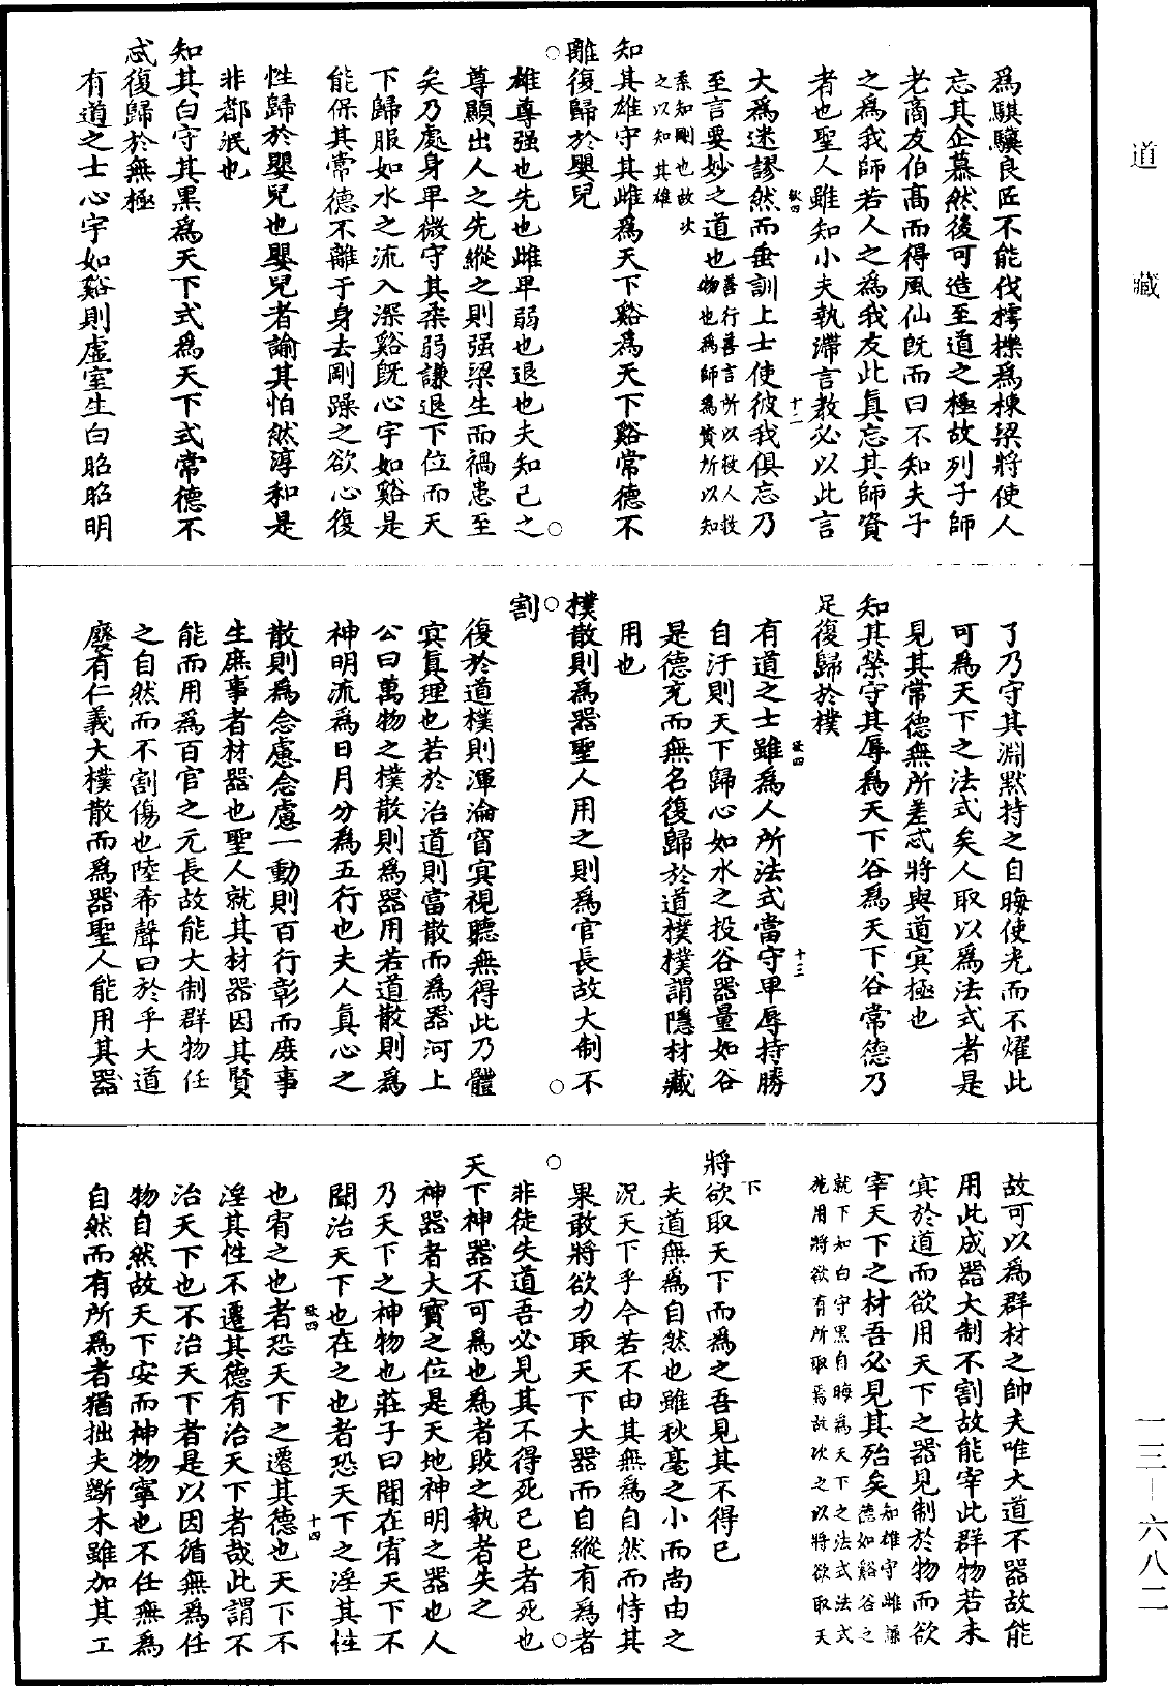 道藏
為騏驥良匠不能伐樗櫟爲棟梁將使人
忘其企慕然後可造至道之極故列子師
老商友伯高而得風仙旣而曰不知夫子
之為我師若人之為我友此眞忘其師資
者也聖人雖知小夫執滯言教必以此言
大為迷謬然而垂訓上士使彼我俱忘乃
至言要妙之道也善行善言所以救人救
物也為師為資所以知
柔知剛也故次
之以知其雄
知其雄守其雌爲天下谿爲天下谿常德不
離復歸於嬰兒
雄尊强也先也雌卑弱也退也夫知己之
尊顯出人之先縱之則强梁生而禍患至
矣乃處身卑微守其柔弱謙退下位而天
下歸服如水之流入深谿旣心宇如谿是
能保其常德不離于身去剛躁之欲心復
性歸於嬰兒也嬰兒者諭其怕然淳和是
非都泯也
知其白守其黑爲天下式爲天下式常德不
忒復歸於無極
有道之士心宇如谿則虛室生白昭昭明
了乃守其淵默持之自晦使光而不燿此
可爲天下之法式矣人取以爲法式者是
見其常德無所差忒將與道冥極也
知其榮守其辱爲天下谷爲天下谷常德乃
足復歸於樸
有道之士雖爲人所法式當守卑辱持勝
自汙則天下歸心如水之投谷器量如谷
是德充而無名復歸於道樸樸謂隱材藏
用也
樸散則爲器聖人用之則爲官長故大制不
割
復於道樸則渾淪窅冥視聽無得此乃體
冥眞理也若於治道則當散而爲器河上
公曰萬物之樸散則爲器用若道散則爲
神明流爲日月分爲五行也夫人眞心之
散則爲念慮念慮一動則百行彰而庶事
生庶事者材器也聖人就其材器因其賢
能而用爲百官之元長故能大制群物任
之自然而不割傷也陸希聲曰於乎大道
廢有仁義大樸散而爲器聖人能用其器
故可以爲群材之帥夫唯大道不器故能
用此成器大制不割故能宰此群物若未
冥於道而欲用天下之器見制於物而欲
宰天下之材吾必見其殆矣知雄守雌謙
德如谿谷之
就下知白守黑自晦爲天下之法式法式
施用將欲有所取焉故次之以將欲取天
下
將欲取天下而爲之吾見其不得已
夫道無爲自然也雖秋毫之小而尚由之
況天下乎今若不由其無爲自然而恃其
果敢將欲力取天下大器而自縱有爲者
非徒失道吾必見其不得死已已者死也
天下神器不可爲也爲者敗之執者失之
神器者大寶之位是天地神明之器也人
乃天下之神物也莊子曰聞在宥天下不
聞治天下也在之也者恐天下之淫其性
也宥之也者恐天下之遷其德也天下不
淫其性不遷其德有治天下者哉此謂不
治天下也不治天下者是以因循無爲任
物自然故天下安而神物寧也不任無爲
自然而有所爲者猶拙夫斲木雖加其工
欲四
十二
欲四
十三
欲四
十四
一三—六八二